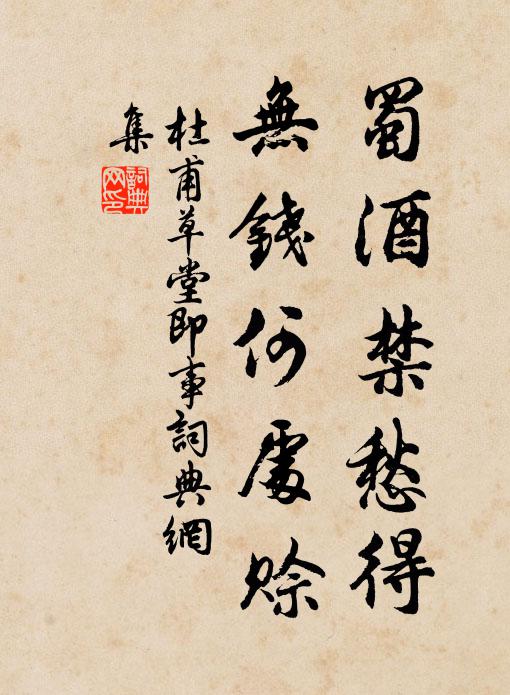 蜀酒禁愁得
無錢何處賒
杜甫草堂即事詞典網
集
詞典
网印